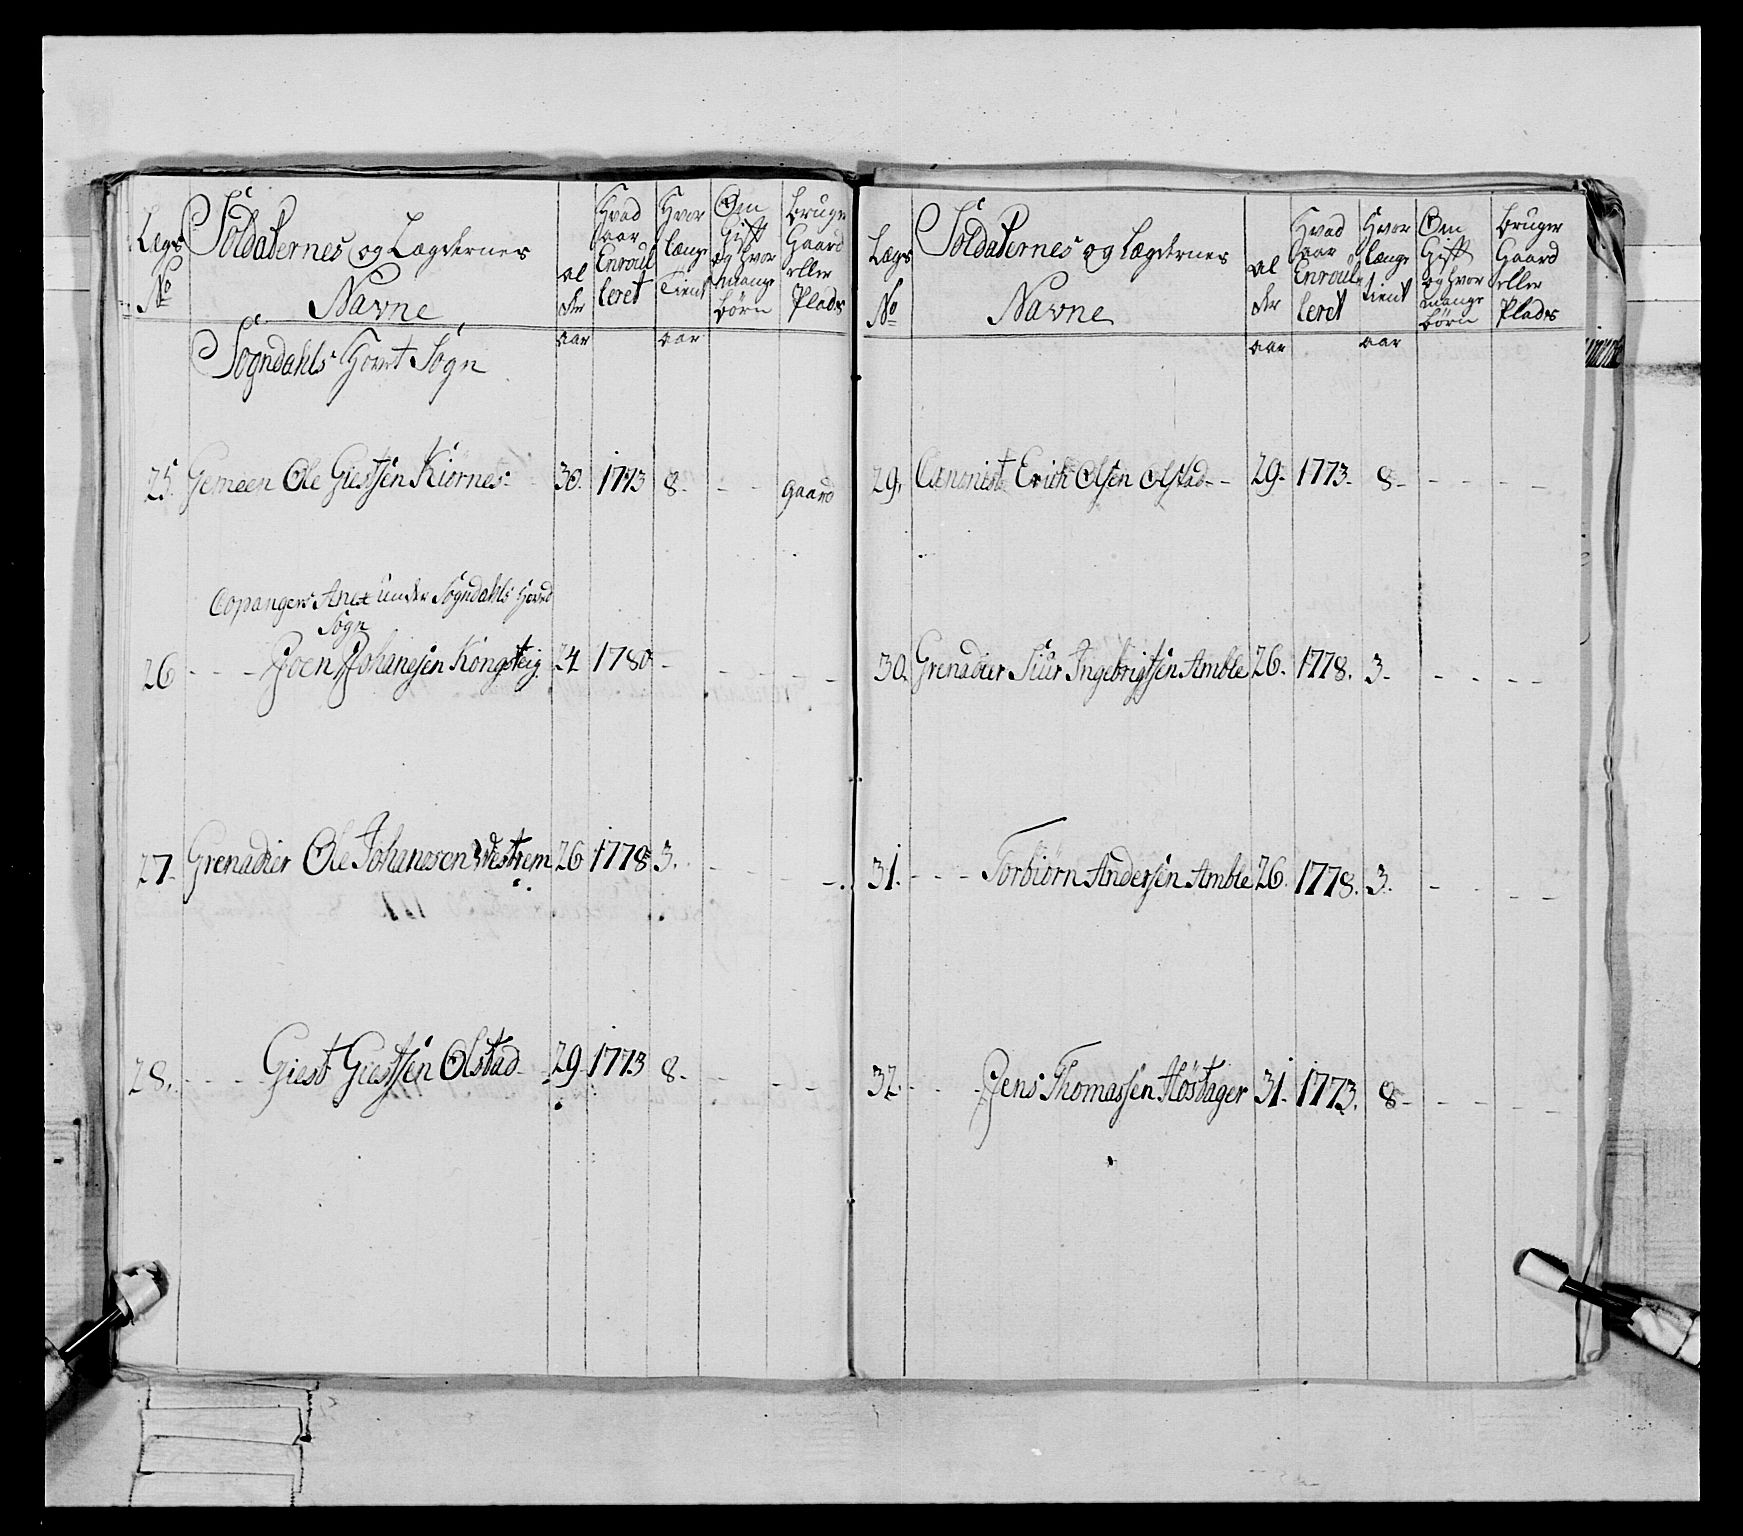 Lægs No
Soldaternes og Lægdernes Navne
al der
Hvad aar Enroul leret
Hvor længe Tient
Om Gift og hvor mange børn
bruger Gaard eller Plads
aar aar
Sogndahls Hovet Sogn
25. Gemeen Ole Giestsen Kiørnes 30. 1773 8 - - Gaard
Copangers Anex under Sogndahls Hoved
Sogn
26 - - - Joen Johanesen Kongsteig 24 1780 - - - - -
27. Grenadier Ole Johannesen Westrem 26 1778 3. - - - -
28. - - - Giest Giestsen Olstad 29 1773 8 - - - -
Lægs No
Soldaternes og Lægdernes Navne
al der
Hvad aar Enroul leret
Hvor længe tient
Om Gift og hvor mange børn
bruger Gaard eller Plads
aar aar
29. Erich Olsen Olstad - - 29. 1773. 8 - - - - -
30. Grenadier Siur Ingebrigtsen Amble 26. 1778. 3. - - - -
31. - - - Torbiørn Andersen Amble 26. 1778. 3. - - - -
32. - - - Jens Thomassen Høstager 31. 1773. 8 - - - - -